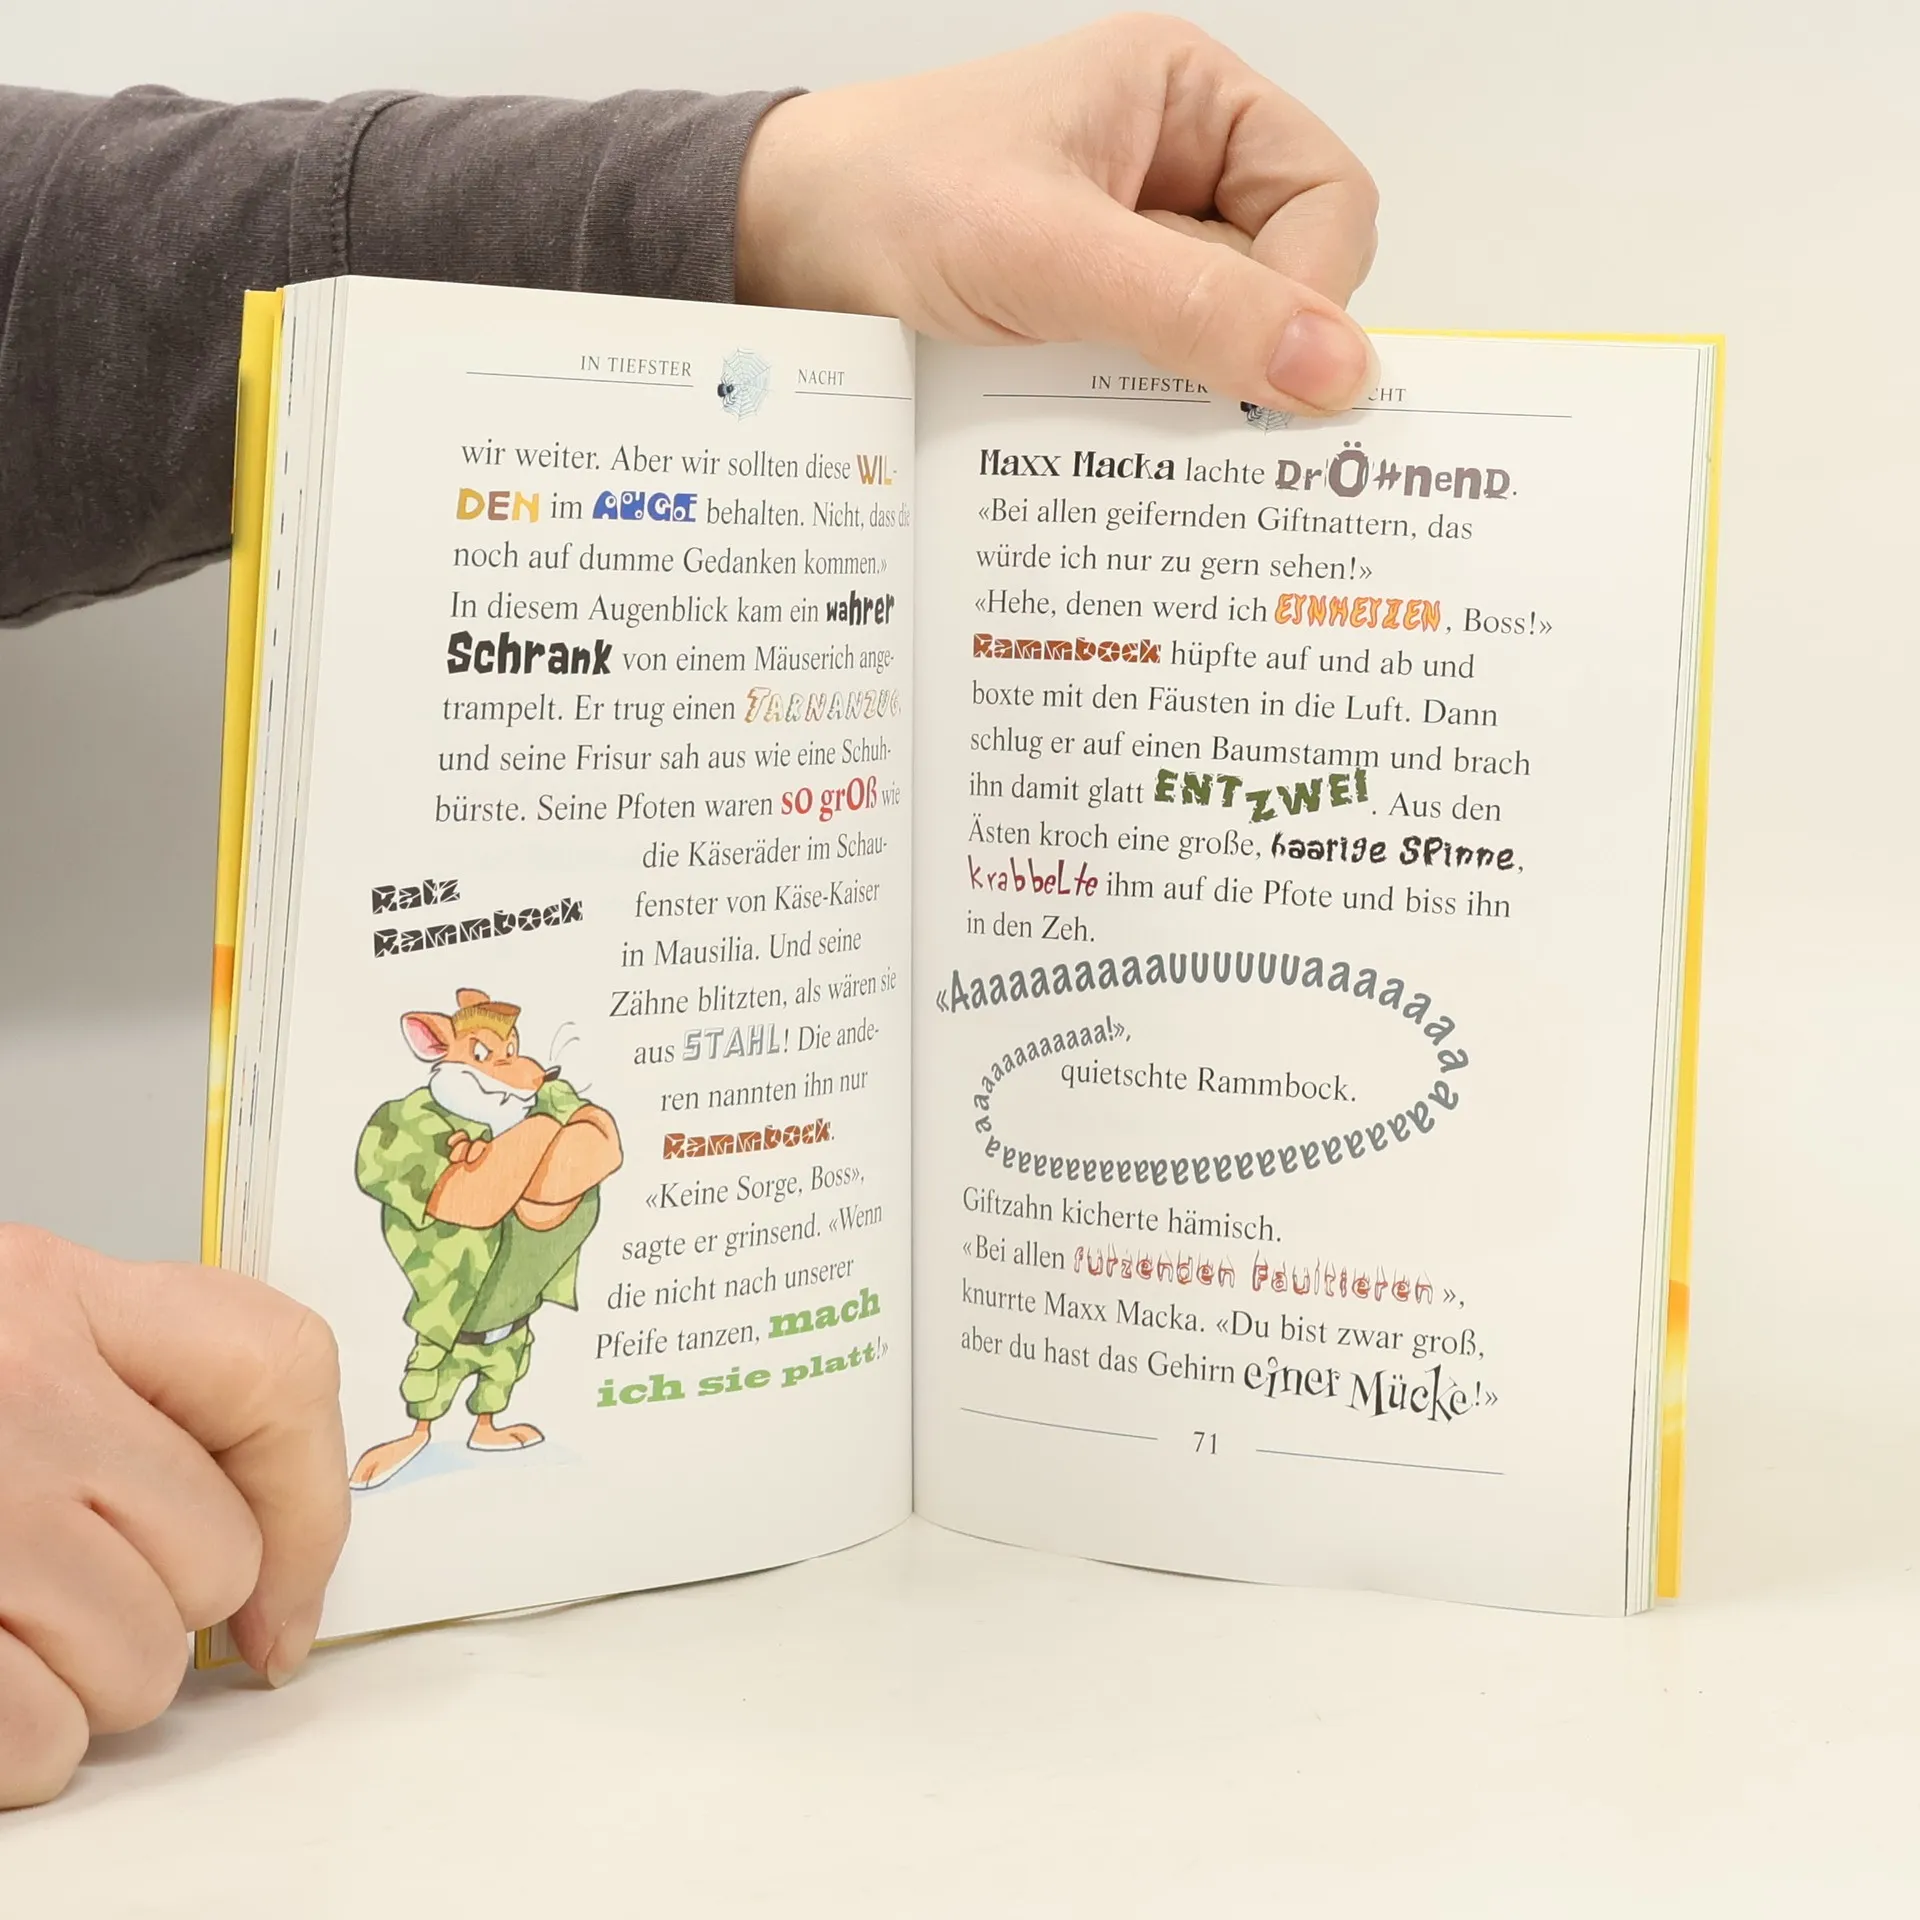 IN TIEFSTER NACHT
wir weiter. Aber wir sollten diese WIL-
DEN im AUGE behalten. Nicht, dass die
noch auf dumme Gedanken kommen.»
In diesem Augenblick kam ein wahrer
Schrank von einem Mäuserich ange-
trampelt. Er trug einen TARNANZUG
und seine Frisur sah aus wie eine Schuh-
bürste. Seine Pfoten waren so groß wie
die Käseräder im Schau-
fenster von Käse-Kaiser
in Mausilia. Und seine
Zähne blitzten, als wären sie
aus STAHL! Die ande-
ren nannten ihn nur
Rammbock.
«Keine Sorge, Boss»,
sagte er grinsend. «Wenn
die nicht nach unserer
Pfeife tanzen, mach
ich sie platt!»
Ratz
Rammbock
IN TIEFSTER CHT
Maxx Macka lachte DrÖHnenD.
«Bei allen geifernden Giftnattern, das
würde ich nur zu gern sehen!»
«Hehe, denen werd ich EINHEIZEN, Boss!»
Rammbock hüpfte auf und ab und
boxte mit den Fäusten in die Luft. Dann
schlug er auf einen Baumstamm und brach
ihn damit glatt ENTZWEI. Aus den
Ästen kroch eine große, haarige Spinne,
krabbelte ihm auf die Pfote und biss ihn
in den Zeh.
«Aaaaaaaaaauuuuuuuaaaaaaaaaaaaaaaaaaaaaaaaaaaaaaaaaaaaaaaaaaaaaaa!»,
quietschte Rammbock.
Giftzahn kicherte hämisch.
«Bei allen furzenden Faultieren»,
knurrte Maxx Macka. «Du bist zwar groß,
aber du hast das Gehirn einer Mücke!»
71